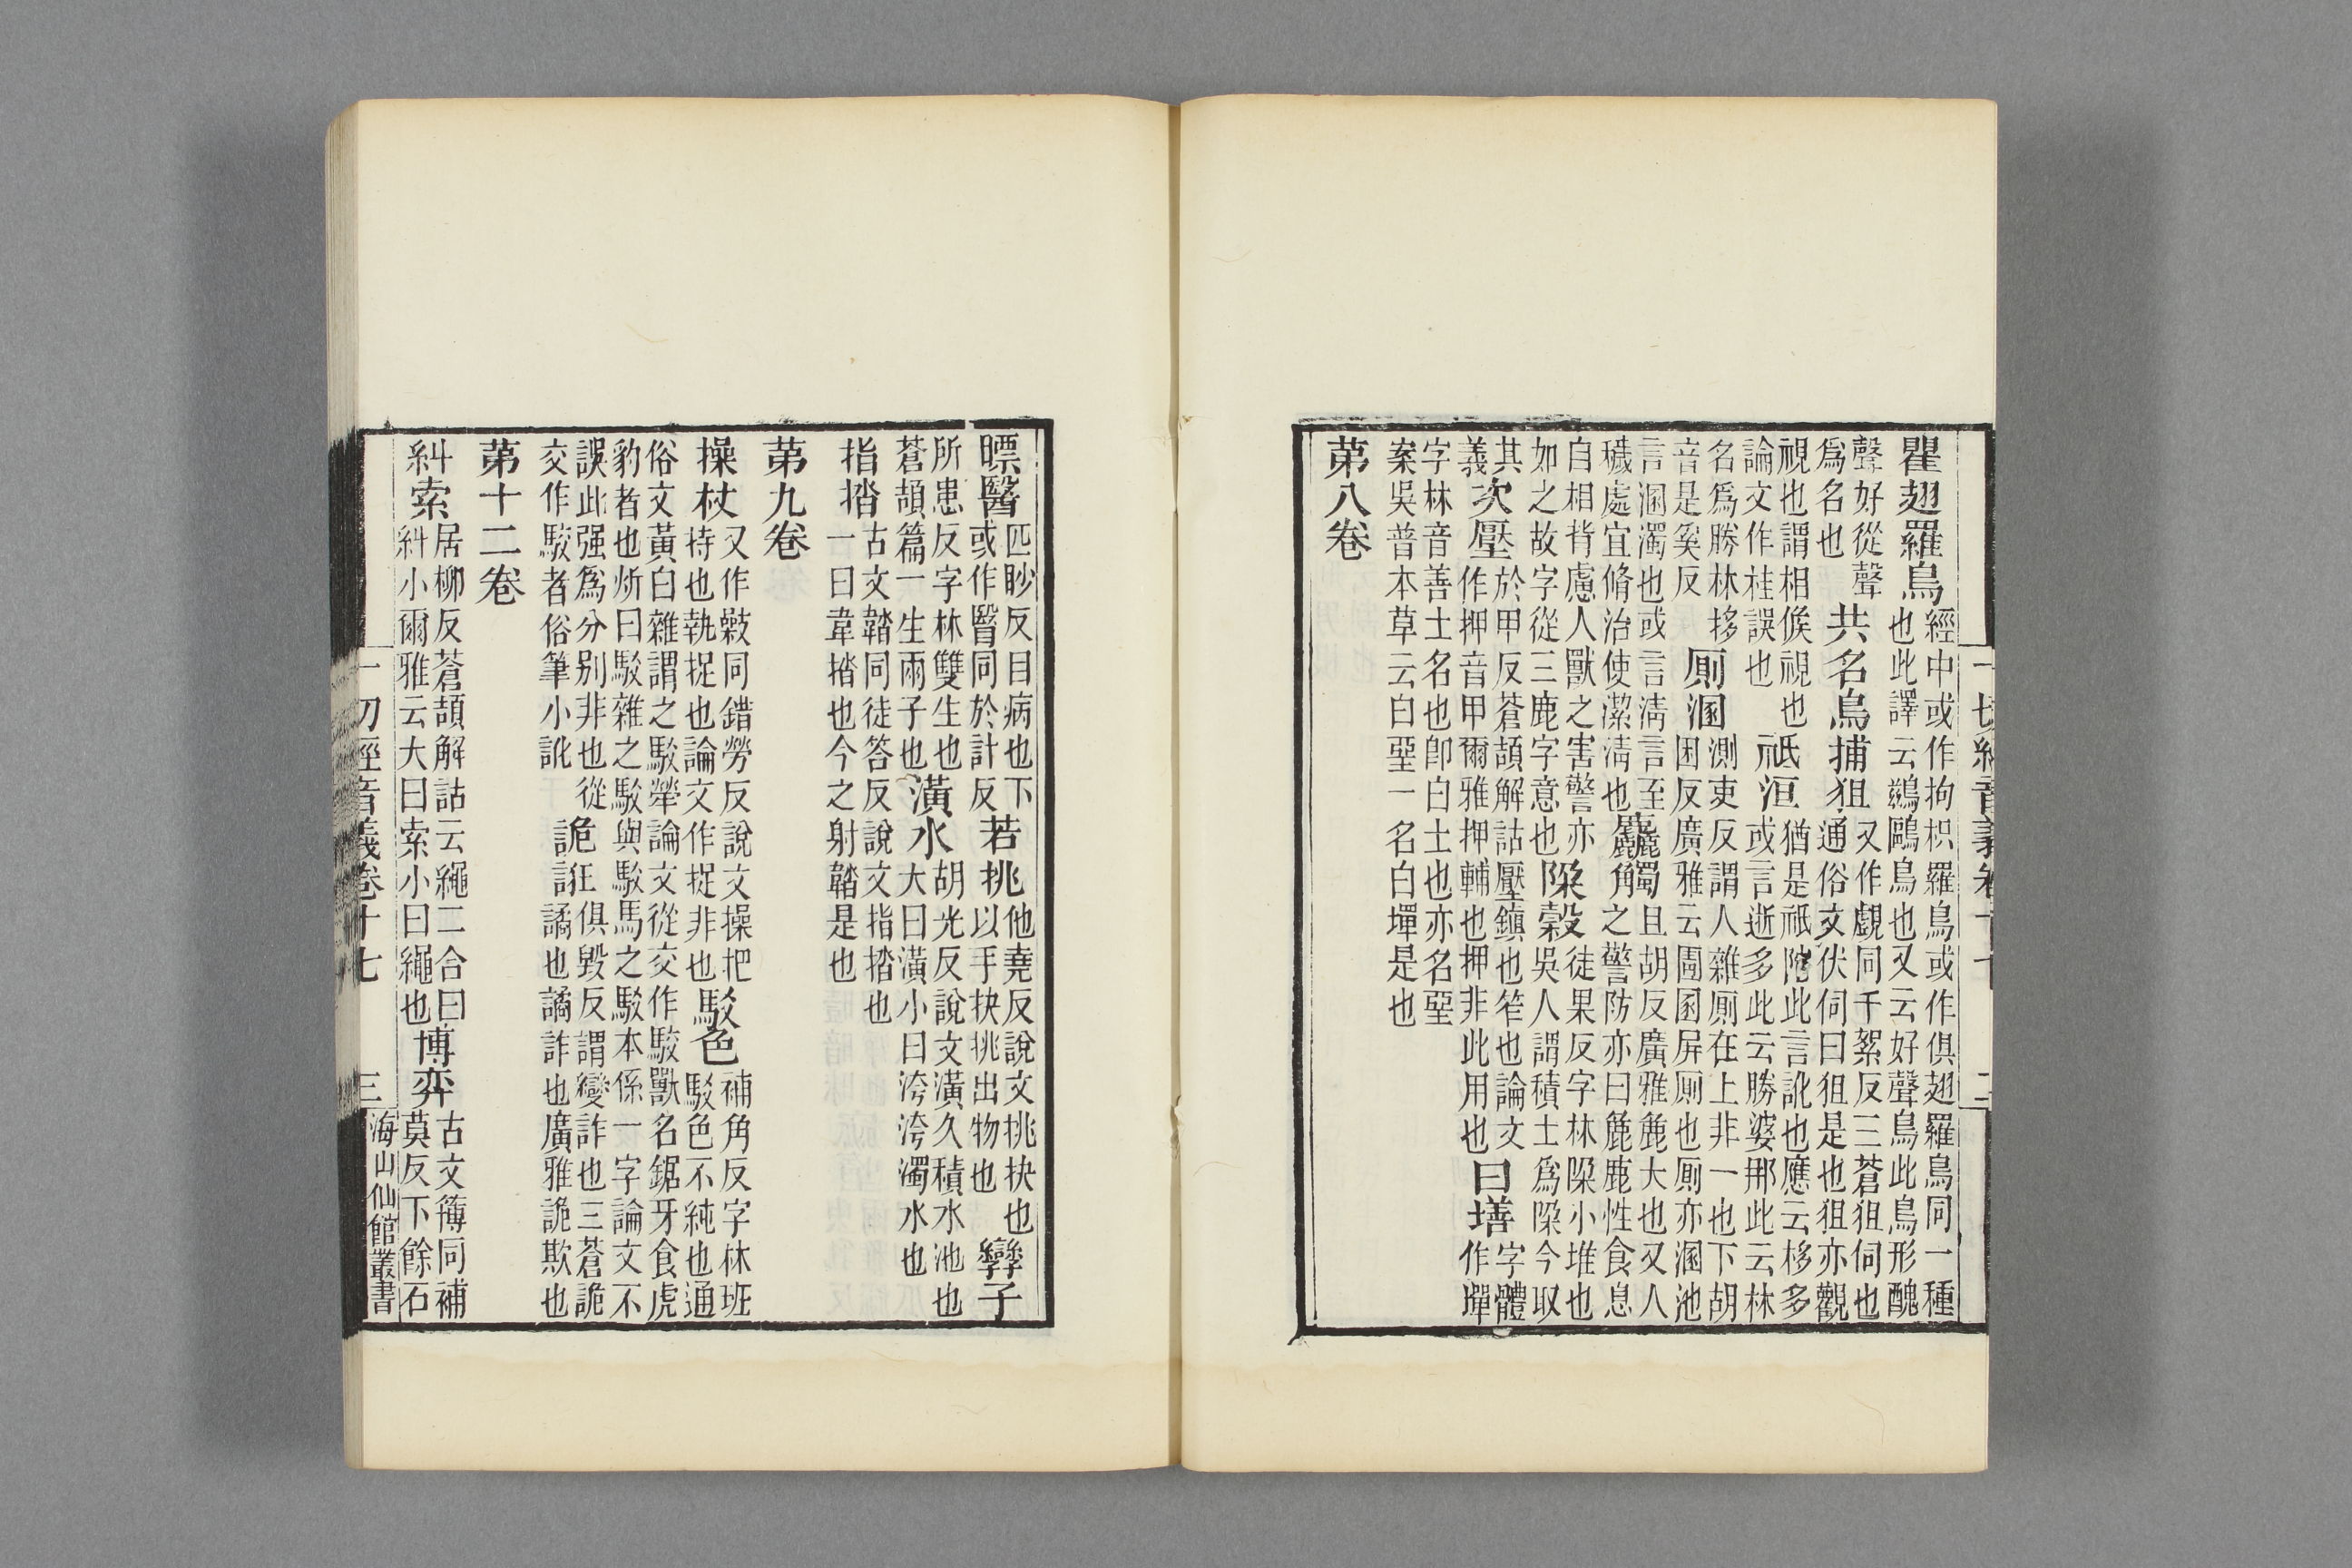 瞿翅羅鳥經中或作拘枳羅鳥或作俱翅羅鳥同一種也此譯云鷁鷗鳥也又云好聲鳥此鳥形醜
聲好從聲爲名也共名鳥捕狙又作覷同千絮反三蒼狙伺也通俗文伏伺曰狙是也狙亦觀
視也謂相候視也論文作桂誤也祇洹猶是祇陁此言訛也應云移多或言逝多此云勝婆那此云林
名爲勝林移音是奚反厠溷測吏反謂人雜厠在上非一也下胡困反廣雅云圊圂屏厠也厠亦溷池
言溷濁也或言淸言至穢處宜脩治使潔淸也麤觸且胡反廣雅麁大也又人之警防亦曰麁鹿性食息
自相背慮人獸之害警亦如之故字從三鹿字意也𨹃穀徒果反字林𨹃小堆也吳人謂積土爲𨹃今取
其義次壓於甲反蒼頡解詁壓鎮也笮也論文作押音甲爾雅押輔也押非此用也曰墡字體作墠
字林音善土名也卽白土也亦名堊案吳普本草云白堊一名白墠是也
第八卷
一切經音義卷十七 二
瞟瞖匹眇反目病也下或作瞖同於計反若挑他堯反說文挑抉也以手抉挑出物也孿子
所患反字林雙生也蒼頡篇一生兩子也潢水胡光反說文潢久積水池也大曰潢小曰洿洿濁水也
指揩古文鞜同徒答反說文指揩也一曰韋揩也今之射鞜是也
第九卷
操杖又作𣀉同錯勞反說文操把持也執捉也論文作捉非也駁色補角反字林班駁色不純也通
俗文黃白雜謂之駁犖論文從交作駮獸名鋸牙食虎豹者也炘曰駁雜之駁與駁馬之駁本係一字論文不
誤此强爲分别非也從交作駮者俗筆小訛詭誑俱毀反謂變詐也三蒼詭譎也譎詐也廣雅詭欺也
第十二卷
糾索居柳反蒼頡解詁云繩二合曰糾小爾雅云大曰索小曰繩也博弈古文簙同補莫反下餘石
一切經音義卷十七 三 海山仙館叢書